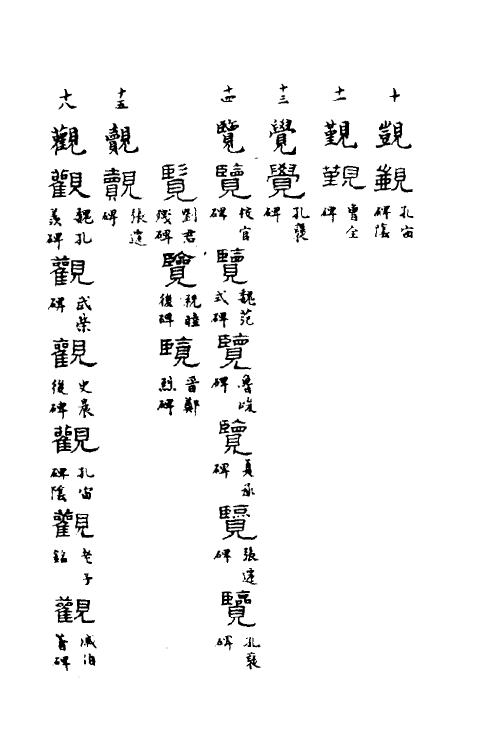 十 覬 覬 孔宙碑陰
十一 覲 覲 曹全碑
十三 覺 覺 孔襃碑
十四 覽 覽 校官碑 覽 魏范式碑 覽 魯峻碑 覽 夏承碑 覽 張遷碑 覽 孔襃碑
覽 劉君殘碑 覽 祝睦後碑 覽 晉鄭烈碑
十五 覿 覿 張遷碑
十八 觀 觀 魏孔羨碑 觀 武榮碑 觀 史晨後碑 觀 孔宙碑陰 觀 老子銘 觀 戚伯著碑